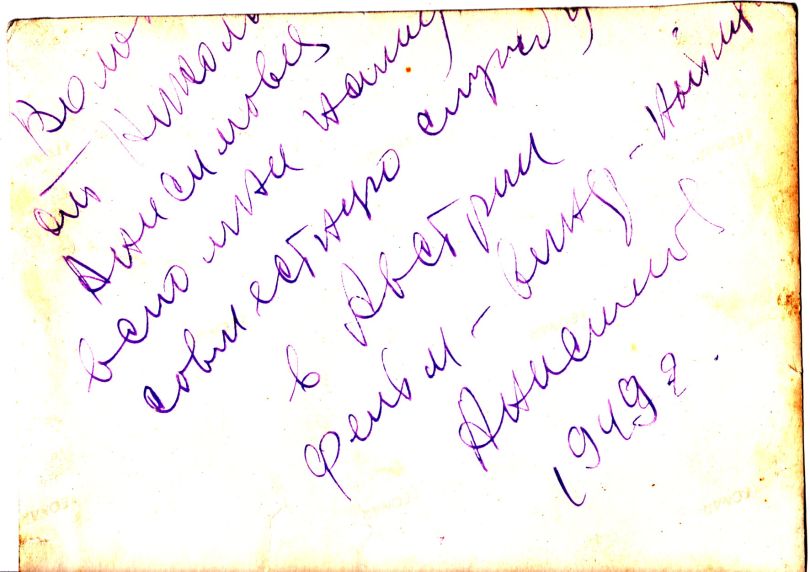 Воло
от Никола
Анисимовса
вспомни нашу
совместную службу
в Австрии
фельм-винд-
Анисимов
1949г.